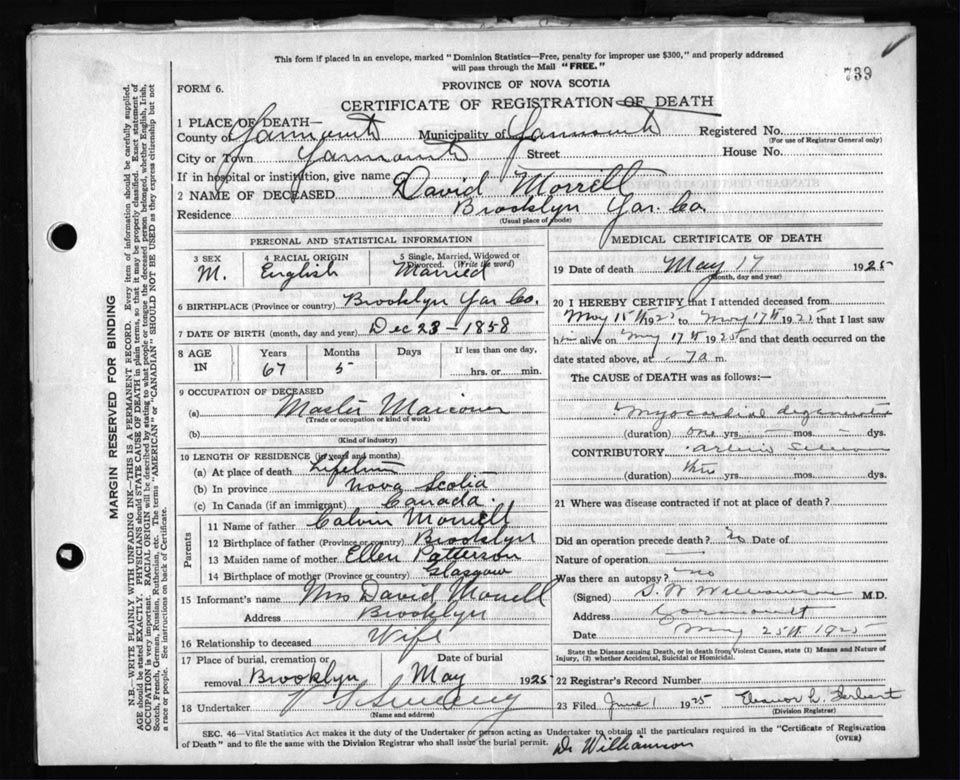 This form if placed in an envelope, marked "Dominion Statistics—Free, penalty for improper use $300," and properly addressed
will pass through the Mail "FREE."
739
PROVINCE OF NOVA SCOTIA
FORM 6.
CERTIFICATE OF REGISTRATION OF DEATH
1 PLACE OF DEATH—
County of Yarmouth Municipality of Yarmouth Registered No.
(For use of Registrar General only)
City or Town Yarmouth Street House No.
If in hospital or institution, give name
2 NAME OF DECEASED David Morrell
Residence Brooklyn Yar. Co.
(Usual place of abode)
PERSONAL AND STATISTICAL INFORMATION
3 SEX 4 RACIAL ORIGIN 5 Single, Married, Widowed or
Divorced. (Write the word)
M. English Married
6 BIRTHPLACE (Province or country) Brooklyn Yar Co.
7 DATE OF BIRTH (month, day and year) Dec 23 - 1858
8 AGE IN Years Months Days If less than one day,
67 5 hrs. or min.
9 OCCUPATION OF DECEASED
(a) Master Marioner
(Trade or occupation or kind of work)
(b)
(Kind of industry)
10 LENGTH OF RESIDENCE (in years and months)
(a) At place of death Lifetime
(b) In province Nova Scotia
(c) In Canada (if an immigrant) Canada.
Parents
11 Name of father Calvin Morrell
12 Birthplace of father (Province or country) Brooklyn
13 Maiden name of mother Ellen Patterson
14 Birthplace of mother (Province or country) Glasgow
15 Informant's name Mrs David Morrell
Address Brooklyn
16 Relationship to deceased Wife
17 Place of burial, cremation or Date of burial
removal Brooklyn May 1925
18 Undertaker
(Name and address)
MEDICAL CERTIFICATE OF DEATH
19 Date of death May 17 1925
(Month, day and year)
20 I HEREBY CERTIFY that I attended deceased from
May 15th 1925 to May 17th 1925 that I last saw
him alive on May 17th 1925 and that death occurred on the
date stated above, at 7 a m.
The CAUSE of DEATH was as follows:—
Myocardial degeneration
(duration) one yrs. mos. dys.
CONTRIBUTORY
(duration) yrs. mos. dys.
21 Where was disease contracted if not at place of death?
Did an operation precede death? no Date of
Nature of operation —
Was there an autopsy? no
(Signed) S. W. Williamson M.D.
Address Yarmouth
Date May 25th 1925
State the Disease causing Death, or in death from Violent Causes, state (1) Means and Nature of
Injury, (2) whether Accidental, Suicidal or Homicidal.
22 Registrar's Record Number
23 Filed June 1 1925 Eleanor L. Herbert
(Division Registrar)
SEC. 46—Vital Statistics Act makes it the duty of the Undertaker or person acting as Undertaker to obtain all the particulars required in the "Certificate of Registration
of Death" and to file the same with the Division Registrar who shall issue the burial permit. Dr Williamson (OVER)
MARGIN RESERVED FOR BINDING
N.B.—WRITE PLAINLY WITH UNFADING INK—THIS IS A PERMANENT RECORD. Every item of information should be carefully supplied.
AGE should be stated EXACTLY. PHYSICIANS should STATE CAUSE OF DEATH in plain terms, so that it may be properly classified. Exact statement of
OCCUPATION is very important. RACIAL ORIGIN will be described by stating to what people or tongue the deceased person belonged, whether English, Irish,
Scotch, French, German, Russian, Ruthenian, etc. The terms "AMERICAN" or "CANADIAN" SHOULD NOT BE USED as they express citizenship but not
a race or people. See instructions on back of Certificate.